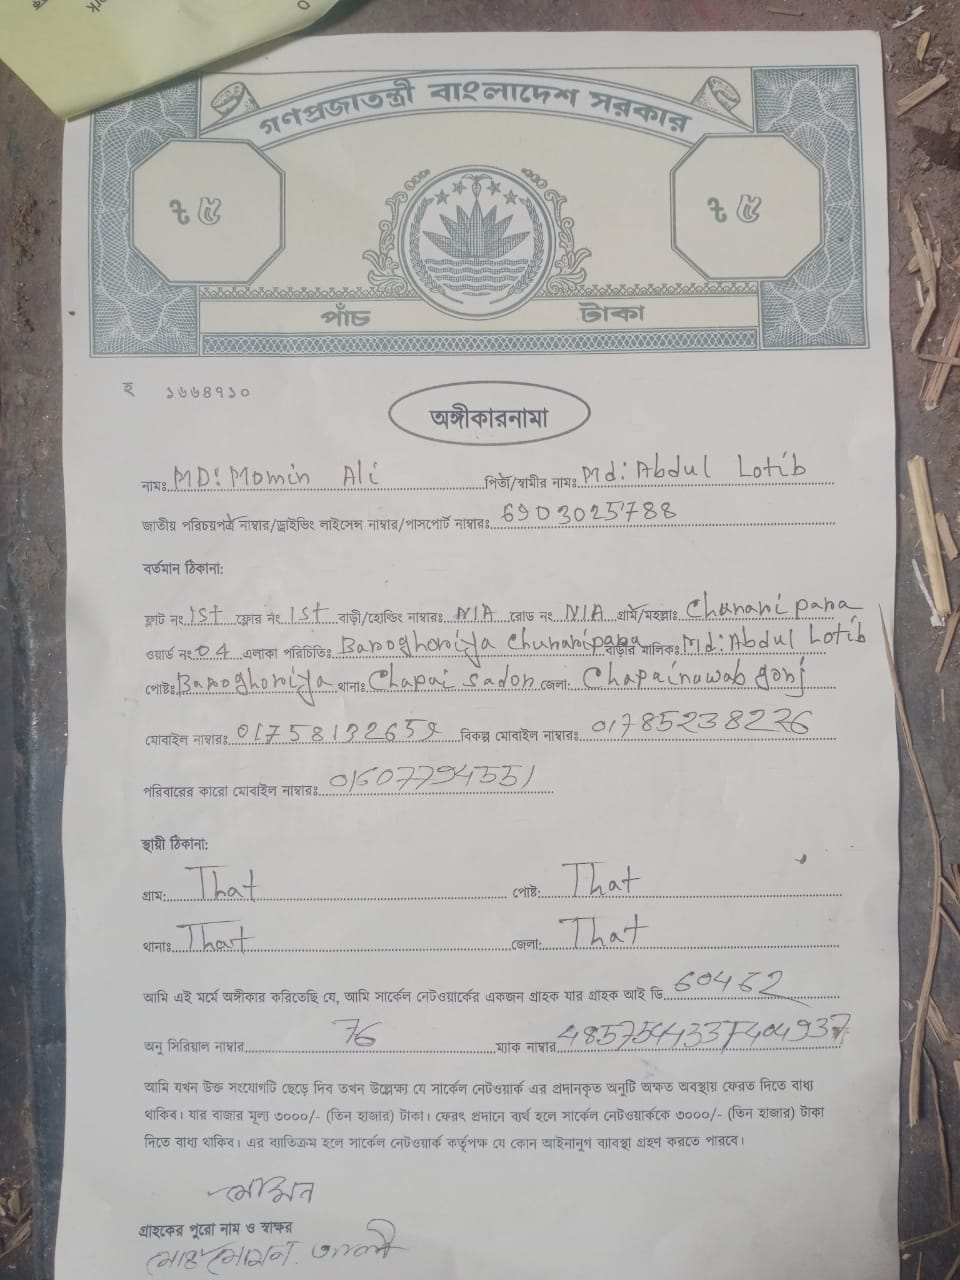 গণপ্রজাতন্ত্রী বাংলাদেশ সরকার
৳ ৫ ৳ ৫
পাঁচ টাকা
হ ১৬৬৪৭১০
অঙ্গীকারনামা
নামঃ MD: Momin Ali পিতা/স্বামীর নামঃ Md: Abdul Lotib
জাতীয় পরিচয়পত্র নাম্বার/ড্রাইভিং লাইসেন্স নাম্বার/পাসপোর্ট নাম্বারঃ 6903025788
বর্তমান ঠিকানা:
ফ্লাট নং 1st ফ্লোর নং 1st বাড়ী/হোল্ডিং নাম্বারঃ N/A রোড নং N/A গ্রাম/মহল্লাঃ Chunari para
ওয়ার্ড নং 04 এলাকা পরিচিতিঃ Baroghoriya Chunaripara বাড়ীর মালিকঃ Md: Abdul Lotib
পোষ্টঃ Baroghoriya থানাঃ Chapai sador জেলা: Chapainawabgonj
মোবাইল নাম্বারঃ 01758132659 বিকল্প মোবাইল নাম্বারঃ 01785238226
পরিবারের কারো মোবাইল নাম্বারঃ 01607794551
স্থায়ী ঠিকানা:
গ্রাম: That পোষ্ট: That
থানাঃ That জেলা: That
আমি এই মর্মে অঙ্গীকার করিতেছি যে, আমি সার্কেল নেটওয়ার্কের একজন গ্রাহক যার গ্রাহক আই ডি 60462
অনু সিরিয়াল নাম্বার 76 ম্যাক নাম্বার
আমি যখন উক্ত সংযোগটি ছেড়ে দিব তখন উল্লেক্ষ্য যে সার্কেল নেটওয়ার্ক এর প্রদানকৃত অনুটি অক্ষত অবস্থায় ফেরত দিতে বাধ্য
থাকিব। যার বাজার মূল্য ৩০০০/- (তিন হাজার) টাকা। ফেরৎ প্রদানে ব্যর্থ হলে সার্কেল নেটওয়ার্ককে ৩০০০/- (তিন হাজার) টাকা
দিতে বাধ্য থাকিব। এর ব্যতিক্রম হলে সার্কেল নেটওয়ার্ক কর্তৃপক্ষ যে কোন আইনানুগ ব্যাবস্থা গ্রহণ করতে পারবে।
মোমিন
গ্রাহকের পুরো নাম ও স্বাক্ষর
মোঃ মোমিন আলী